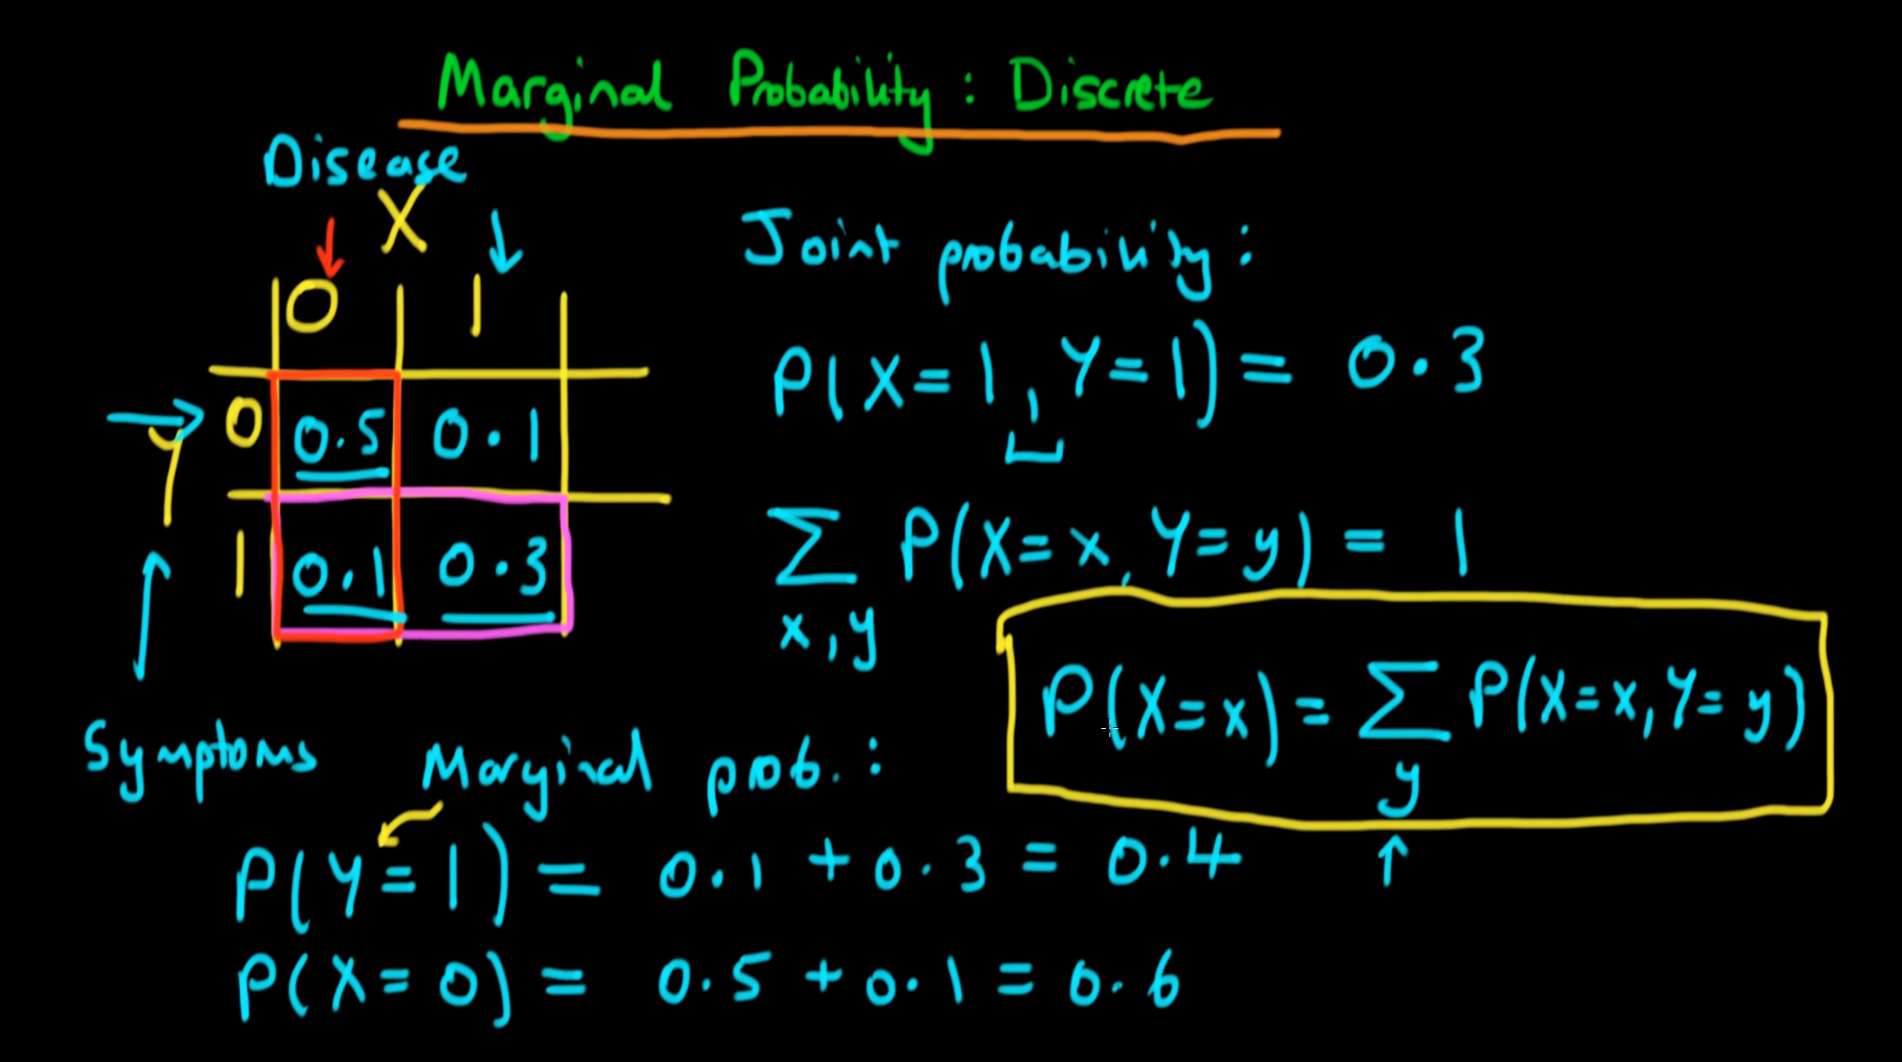 Marginal Probability: Discrete
Disease
X
0 1
Y
0 0.5 0.1
1 0.1 0.3
Symptoms
Joint probability:
P(X=1, Y=1) = 0.3
∑ P(X=x, Y=y) = 1
x,y
P(X=x) = ∑ P(X=x, Y=y)
y
Marginal prob.:
P(Y=1) = 0.1 + 0.3 = 0.4
P(X=0) = 0.5 + 0.1 = 0.6